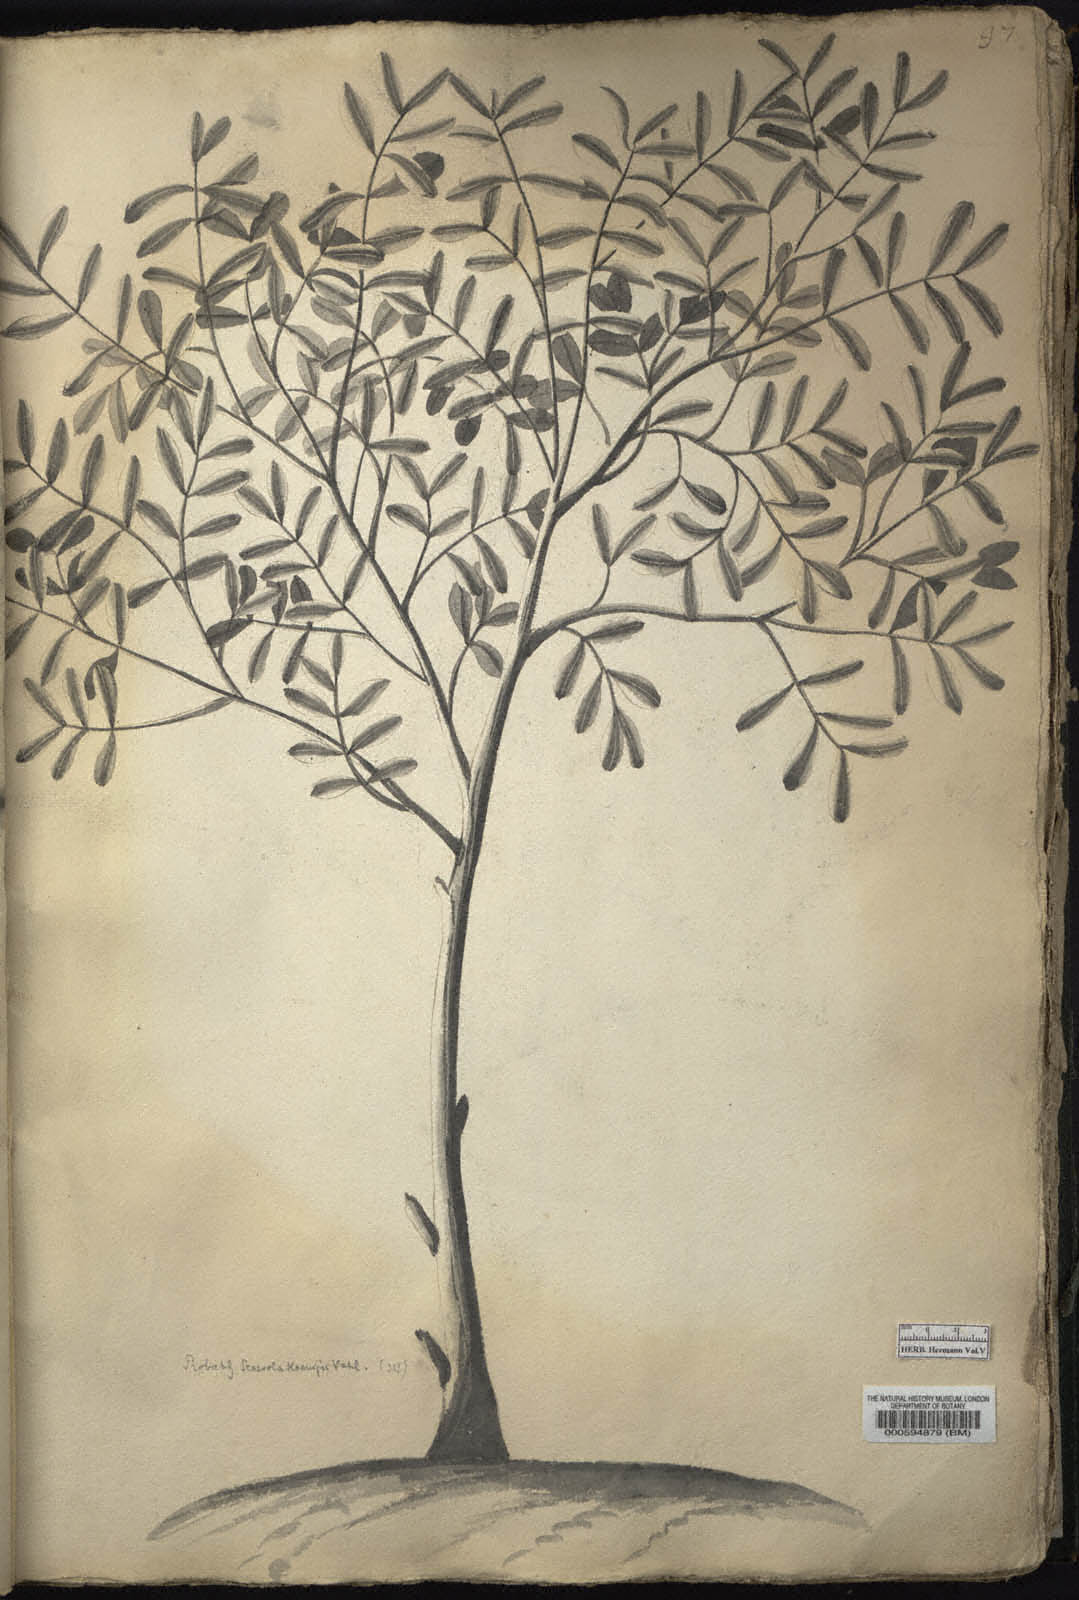 97
Probably Scaevola Koenigii Vahl. (313)
HERB. Hermann Vol. V
THE NATURAL HISTORY MUSEUM, LONDON
DEPARTMENT OF BOTANY
000594879 (BM)